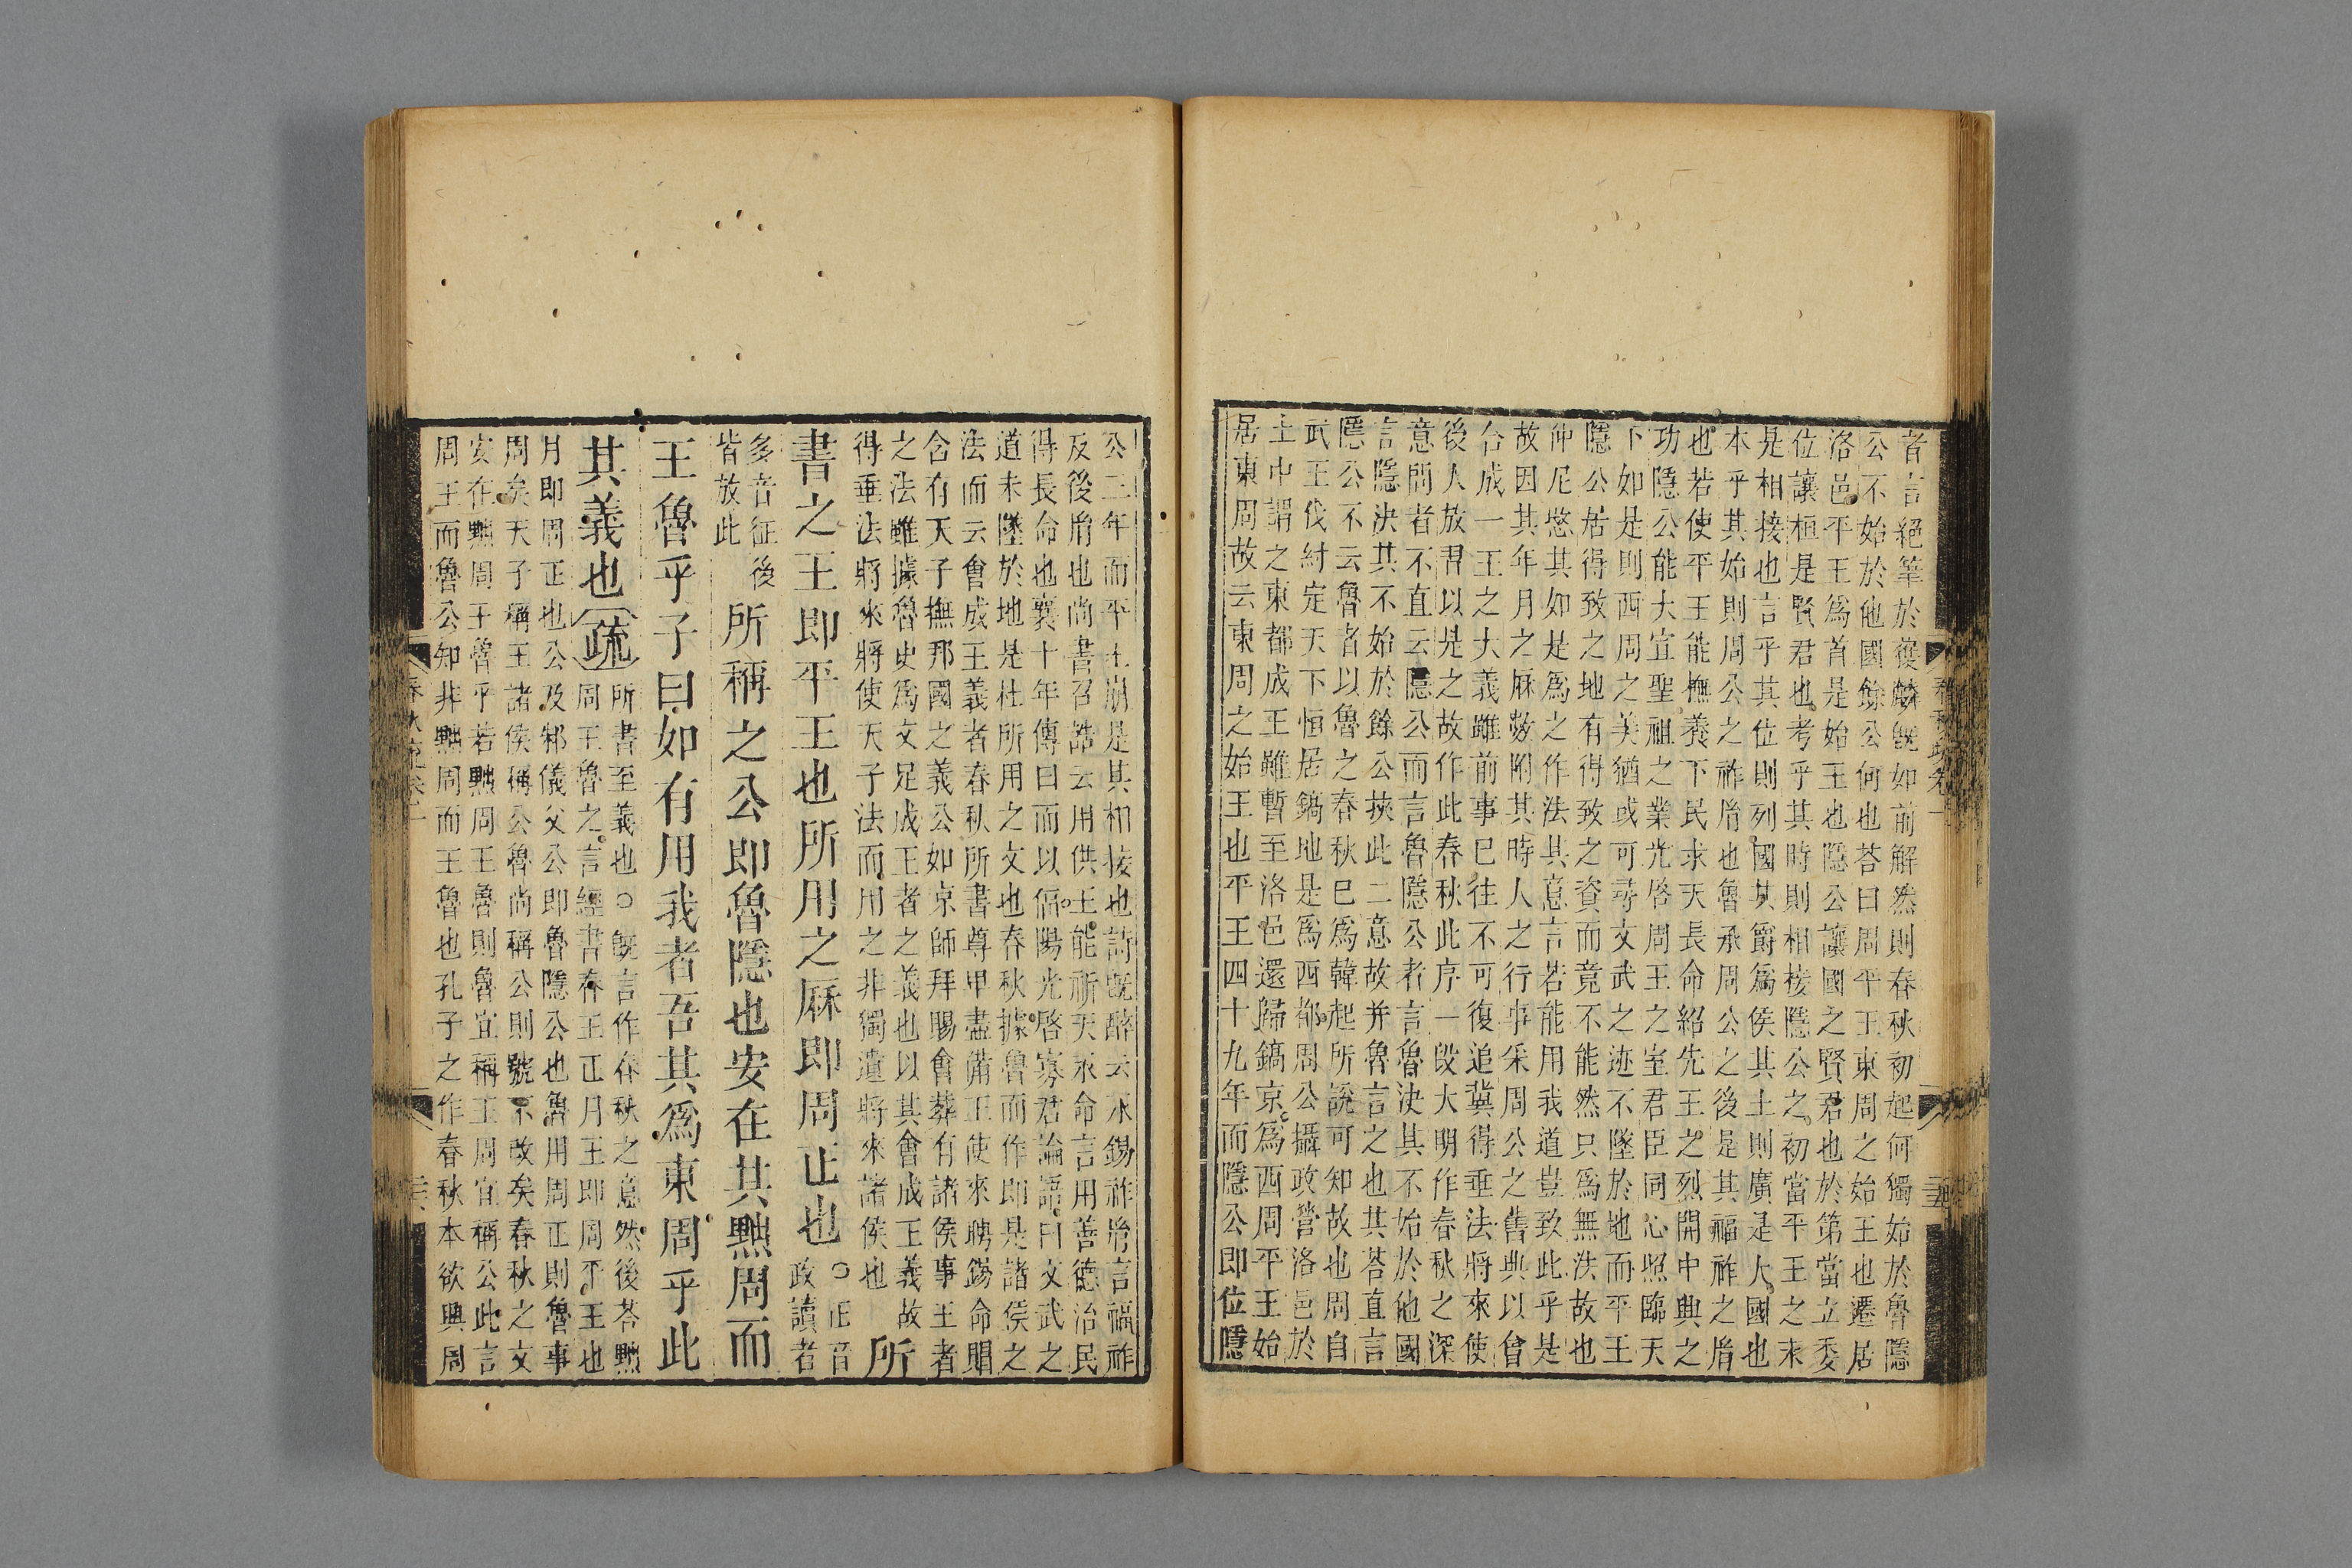 者言絕筆於獲麟旣如前解然則春秋初起何獨始於魯隱
公不始於他國餘公何也荅曰周平王東周之始王也遷居
洛邑平王爲首是始王也隱公讓國之賢君也於第當立委
位讓桓是賢君也考乎其時則相接隱公之初當平王之末
是相接也言乎其位則列國其爵爲侯其土則廣是大國也
本乎其始則周公之祚胤也魯承周公之後是其福祚之胤
也若使平王能撫養下民求天長命紹先王之烈開中興之
功隱公能大宜聖祖之業光啓周王之室君臣同心照臨天
下如是則西周之美猶或可尋文武之迹不墜於地而平王
隱公居得致之地有得致之資而竟不能然只爲無法故也
仲尼愍其如是爲之作法其意言若能用我道豈致此乎是
故因其年月之厤數附其時人之行事采周公之舊典以會
合成一王之大義雖前事巳往不可復追冀得垂法將來使
後人放習以是之故作此春秋此序一段大明作春秋之深
意問者不直云隱公而言魯隱公者言魯決其不始於他國
言隱決其不始於餘公挾此二意故并魯言之也其荅直言
隱公不云魯者以魯之春秋巳爲韓起所說可知故也周自
武王伐紂定天下恒居鎬地是爲西都周公攝政營洛邑於
土中謂之東都成王雖暫至洛邑還歸鎬京爲西周平王始
居東周故云東周之始王也平王四十九年而隱公即位隱
公三年而平王崩是其相接也詩旣醉云永錫祚胤言福祚
反後胤也尚書召誥云用供王能祈天永命言用善德治民
得長命也襄十年傳曰而以偪陽光啓寡君論語曰文武之
道未墜於地是杜所用之文也春秋據魯而作即是諸侯之
法而云會成王義者春秋所書尊卑盡備王使來聘錫命賵
含有天子撫邦國之義公如京師拜賜會葬有諸侯事王者
之法雖據魯史爲文足成王者之義也以其會成王義故
得垂法將來將使天子法而用之非獨遺將來諸侯也 所
書之王即平王也所用之厤即周正也 ○正音政讀者
多音征後皆放此 所稱之公即魯隱也安在其黜周而
王魯乎子曰如有用我者吾其爲東周乎此
其義也 疏 所書至義也○旣言作春秋之意然後荅黜
周王魯之言經書春王正月王即周平王也
月即周正也公及邾儀父公即魯隱公也魯用周正則魯事
周矣天子稱王諸侯稱公魯尚稱公則號不改矣春秋之文
安在黜周王魯乎若黜周王魯則魯宜稱王周宜稱公此言
周王而魯公知非黜周而王魯也孔子之作春秋本欲興周